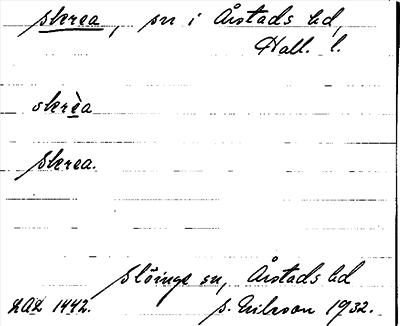 skrea, sn i Årstads hd,
Hall. l.
skrèa
skrea.
Slöinge sn, Årstads hd
LAL 1442. S. Nilsson 1932.